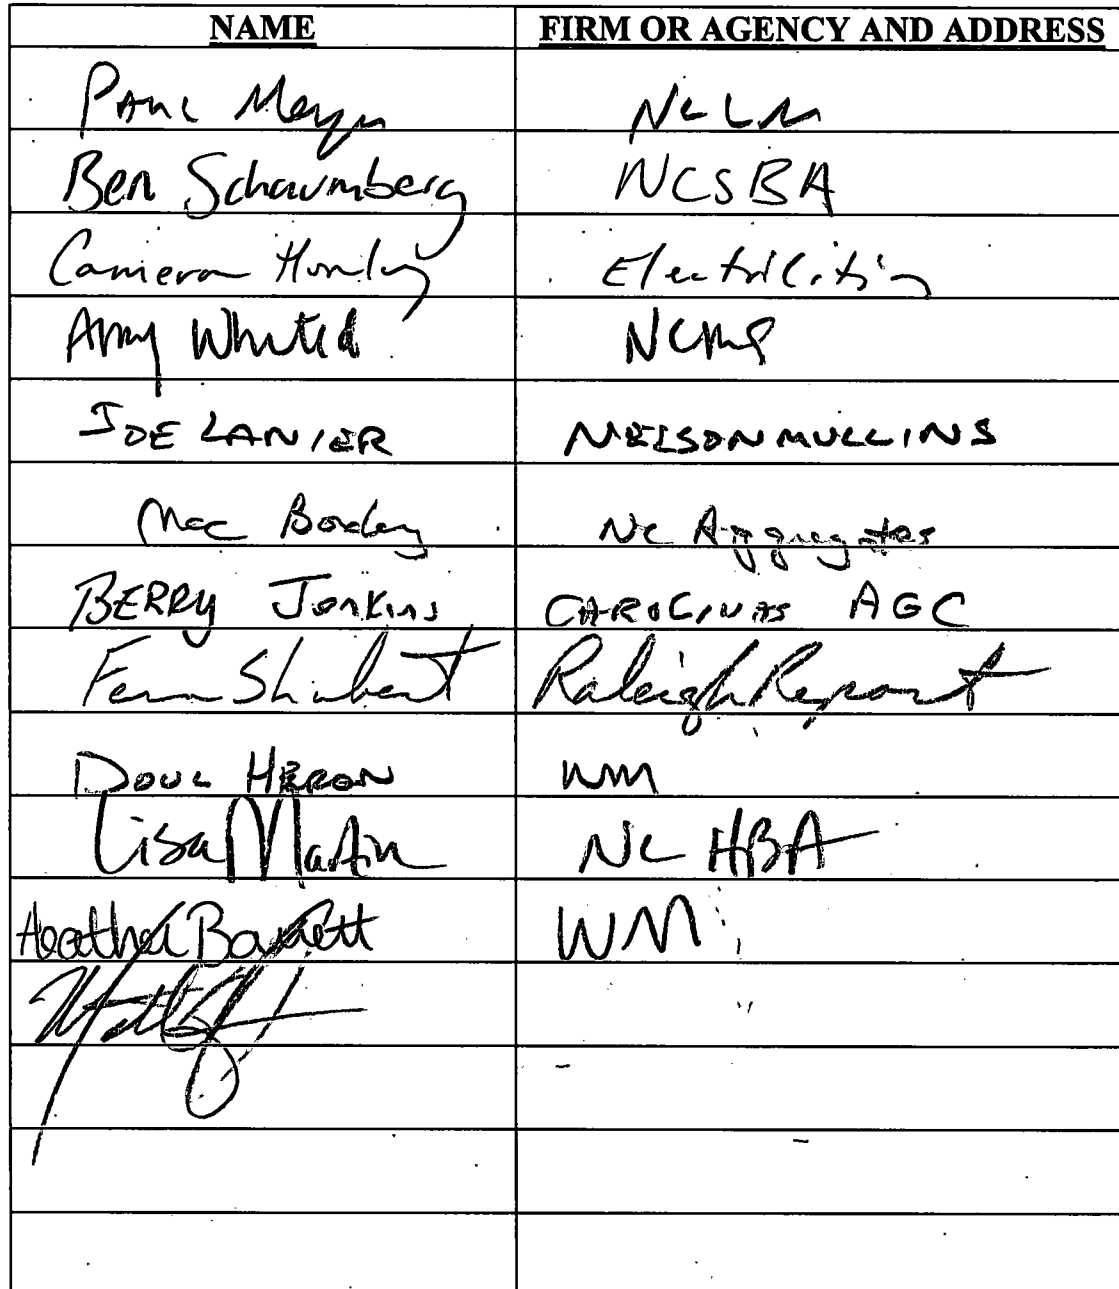 NAME FIRM OR AGENCY AND ADDRESS
Paul Meyer NCLM
Ben Schaumberg NCSBA
Cameron Henley Electricities
Amy Whited NCMS
JOE LANIER NELSON MULLINS
Mac Boxley NC Aggregates
BERRY JENKINS CAROLINAS AGC
Fern Shubert Raleigh Report
DOUG HERON WM
Lisa Martin NC HBA
Heather Barrett WM